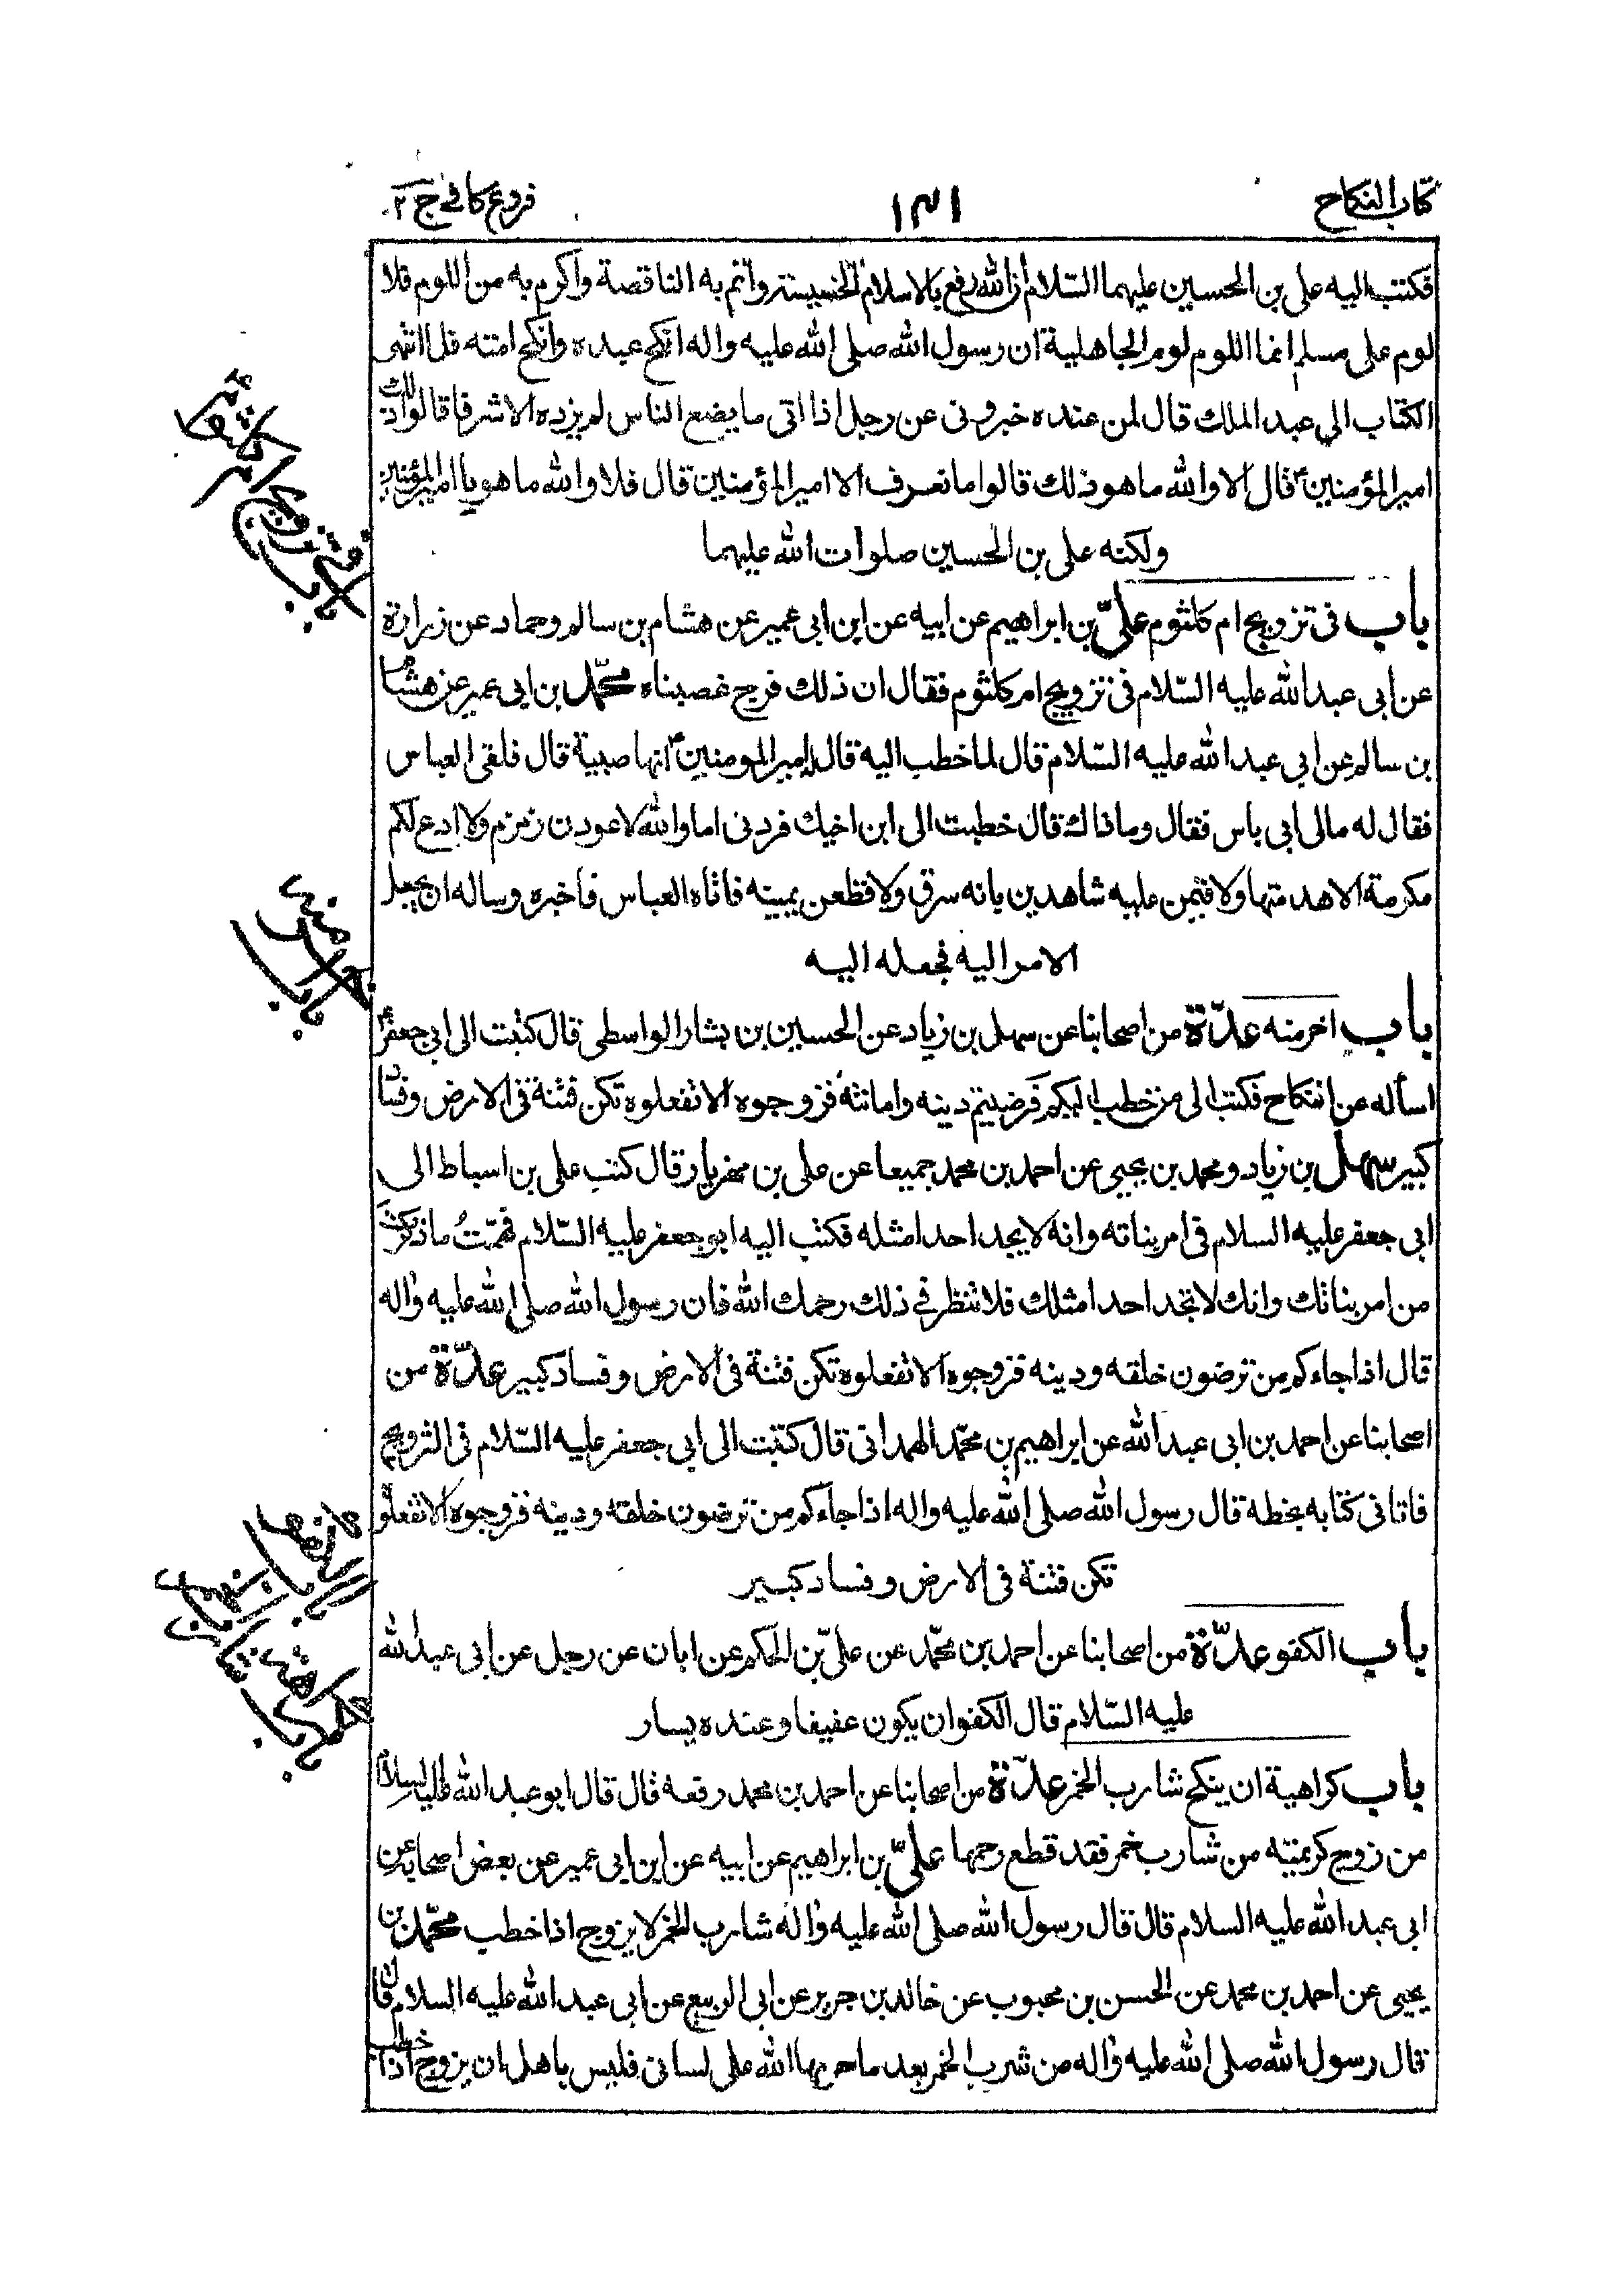 كتاب النكاح
١٣١
فروع كافے ج ٢
فكتب اليه علي بن الحسين عليهما السّلام ان الله رفع بالاسلام الخسيسة واتم به الناقصة واكرم به من اللوم فلا
لوم على مسلم انما اللوم لوم الجاهلية ان رسول الله صلى الله عليه واله انكح عبده وانكح امته فلما انتهى
الكتاب الى عبد الملك قال لمن عنده خبرونى عن رجل اذا اتى ما يضع الناس لم يزده الا شرفا قالوا ذلك
امير المؤمنين قال لا والله ما هو ذلك قالوا ما نعرف الا امير المؤمنين قال فلا والله ما هو يا امير المؤمنين
ولكنه علي بن الحسين صلوات الله عليهما
باب فى تزويج ام كلثوم علىّ بن ابراهيم عن ابيه عن ابن ابى عمير عن هشام بن سالم وحماد عن زرارة
عن ابى عبد الله عليه السّلام فى تزويج ام كلثوم فقال ان ذلك فرج غصبناه محمّد بن ابى عمير عن هشام
بن سالم عن ابي عبد الله عليه السّلام قال لما خطب اليه قال له امير المومنين انها صبية قال فلقى العباس
فقال له مالى ابى باس فقال وما ذاك قال خطبت الى ابن اخيك فردنى اما والله لاعودن زمزم ولا ادع لكم
مكرمة الا هدمتها ولاقيمن عليه شاهدين بانه سرق ولاقطعن يمينه فاتاه العباس فاخبره وساله ان يجعل
الامر اليه فجعله اليه
باب اخر منه عدّة من اصحابنا عن سهل بن زياد عن الحسين بن بشار الواسطى قال كتبت الى ابي جعفر
اسأله عن النكاح فكتب الى من خطب اليكم فرضيتم دينه وامانته فزوجوه الا تفعلوه تكن فتنة فى الارض وفساد
كبير سهل بن زياد ومحمد بن يحيى عن احمد بن محمد جميعا عن على بن مهزيار قال كتب على بن اسباط الى
ابى جعفر عليه السلام فى امر بناته وانه لا يجد احدا مثله فكتب اليه ابو جعفر عليه السّلام فهمتُ ما ذكرت
من امر بناتك وانك لا تجد احدا مثلك فلا تنظر في ذلك رحمك الله فان رسول الله صلى الله عليه واله
قال اذا جاءكم من ترضون خلقه ودينه فزوجوه الا تفعلوه تكن فتنة فى الارض وفساد كبير عدّة من
اصحابنا عن احمد بن ابى عبد الله عن ابراهيم بن محمّد الهمدانى قال كتبت الى ابي جعفر عليه السّلام فى التزويج
فاتانى كتابه بخطه قال رسول الله صلى الله عليه واله اذا جاءكم من ترضون خلقه ودينه فزوجوه الا تفعلوه
تكن فتنة فى الارض وفساد كبير
باب الكفو عدّة من اصحابنا عن احمد بن محمّد عن علىّ بن الحكم عن ابان عن رجل عن ابى عبد الله
عليه السّلام قال الكفو ان يكون عفيفا وعنده يسار
باب كراهية ان ينكح شارب الخمر عدّة من اصحابنا عن احمد بن محمد رفعه قال قال ابو عبد الله عليه السلام
من زوج كريمته من شارب خمر فقد قطع رحمها علىّ بن ابراهيم عن ابيه عن ابن ابى عمير عن بعض اصحابه عن
ابى عبد الله عليه السلام قال قال رسول الله صلى الله عليه واله شارب الخمر لا يزوج اذا خطب محمّد بن
يحيى عن احمد بن محمد عن الحسن بن محبوب عن خالد بن جرير عن ابى الربيع عن ابى عبد الله عليه السلام قال
قال رسول الله صلى الله عليه واله من شرب الخمر بعد ما حرمها الله على لسانى فليس باهل ان يزوج اذا خطب